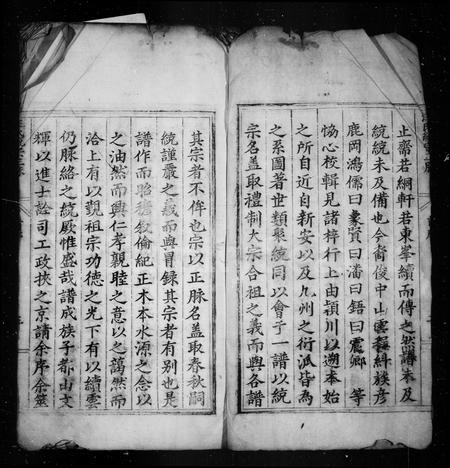 止齋若綱軒若東峯續而傳之然譜未及
統統未及備也今裔俊中山雲糾族彦
鹿岡鴻儒曰象賢曰潘曰鋙曰震卿等
恊心校輯見諸梓行上由頴川以遡本始
之所自近自新安以及九州之衍派皆為
之系圖著世類聚統同以會于一譜以統
宗名盖取禮制大宗合祖之義而與各譜
其宗者不侔也宗以正脉名盖取春秋嗣
統謹嚴之義而與冒録其宗者有别也是
譜作而昭穆叙倫紀正木本水源之念以
之油然而興仁孝親睦之意以之藹然而
洽上有以觀祖宗功德之光下有以續雲
仍脉絡之統厥惟盛哉譜成族子都山文
輝以進士訟司工政挾之京請余序余筮